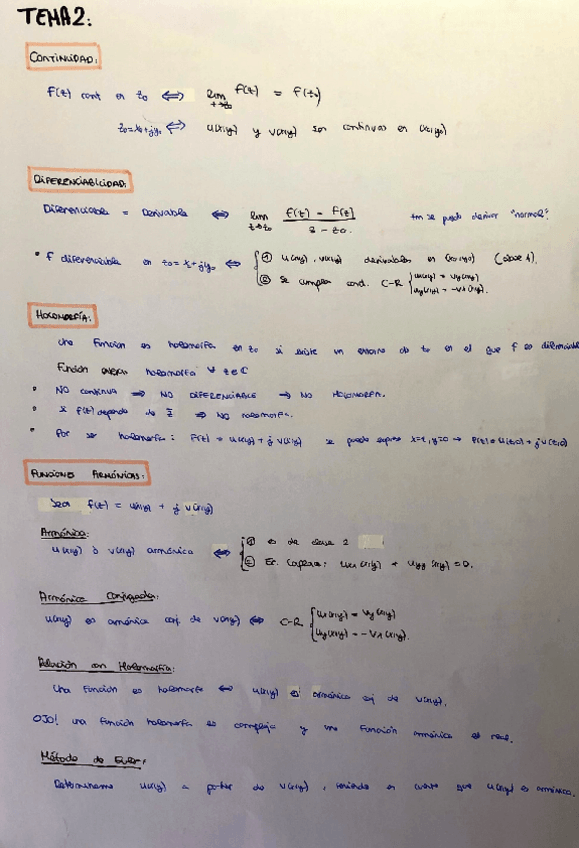 TEMA 2:
CONTINUIDAD:
f(z) cont en z₀ ⟺ lim z→z₀ f(z) = f(z₀)
z₀=x₀+jy₀ ⟺ u(x,y) y v(x,y) son continuas en (x₀,y₀)
DIFERENCIABILIDAD:
Diferenciable = Derivable ⟺ lim z→z₀ f(z) - f(z) / z - z₀ tm se puede derivar "normal".
* f diferenciable en z₀ = x₀+jy₀ ⟺ { ① u(x,y), v(x,y) derivables en (x₀,y₀) (clase 1).
② Se cumplen cond. C-R { ux(x,y) = vy(x,y)
uy(x,y) = -vx(x,y).
HOLOMORFÍA:
Una función es holomorfa en z₀ si existe un entorno de z₀ en el que f es diferenciable
Función entera: holomorfa ∀ z∈ℂ
* NO continua ⟹ NO DIFERENCIABLE ⟹ NO HOLOMORFA.
* Si f(z) depende de z̄ ⟹ NO holomorfa.
* Por ser holomorfa: f(z) = u(x,y) + j v(x,y) se puede x=z, y=0 → f(z) = u(z,0) + j v(z,0)
FUNCIONES ARMÓNICAS:
Sea f(z) = u(x,y) + j v(x,y)
Armónica:
u(x,y) ó v(x,y) armónica ⟺ { ① es de clase 2
② Ec. Laplace: uxx(x,y) + uyy(x,y) = 0.
Armónica Conjugada:
u(x,y) es armónica conj. de v(x,y) ⟺ C-R { ux(x,y) = vy(x,y)
uy(x,y) = -vx(x,y).
Relación con Holomorfía:
Una función es holomorfa ⟺ u(x,y) es armónica conj de v(x,y).
OJO! una función holomorfa es compleja y una función armónica es real.
Método de Euler:
Determinamos u(x,y) a partir de v(x,y), teniendo en cuenta que u(x,y) es armónica.